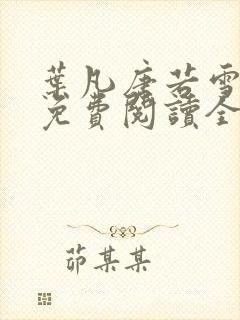 葉凡唐若雪
免費閱讀全
茆某某